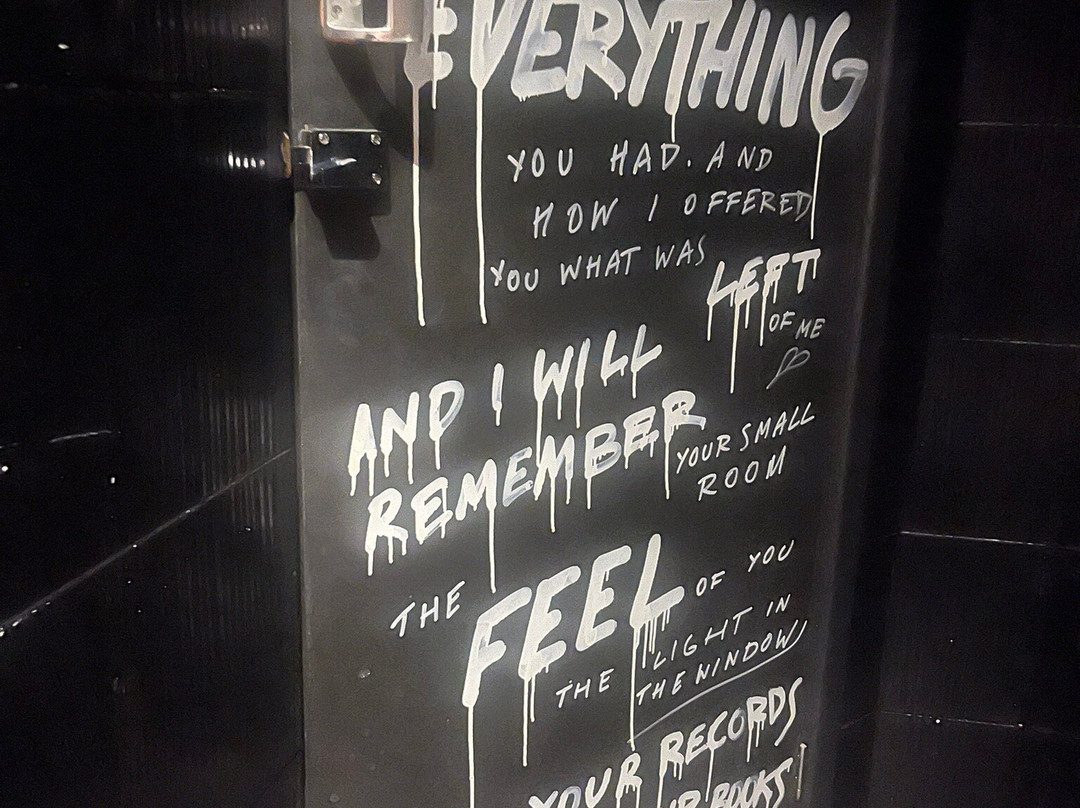 EVERYTHING
YOU HAD. AND
HOW I OFFERED
YOU WHAT WAS
LEFT
OF ME
AND I WILL
REMEMBER
YOUR SMALL
ROOM
THE FEEL OF YOU
THE LIGHT IN
THE WINDOW
YOUR RECORDS
BOOKS